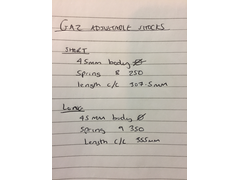 GAZ ADJUSTABLE SHOCKS
SHORT
45mm body Ø
Spring 8 250
length c/c 307.5mm
LONG
45mm body Ø
Spring 9 350
Length c/c 355mm